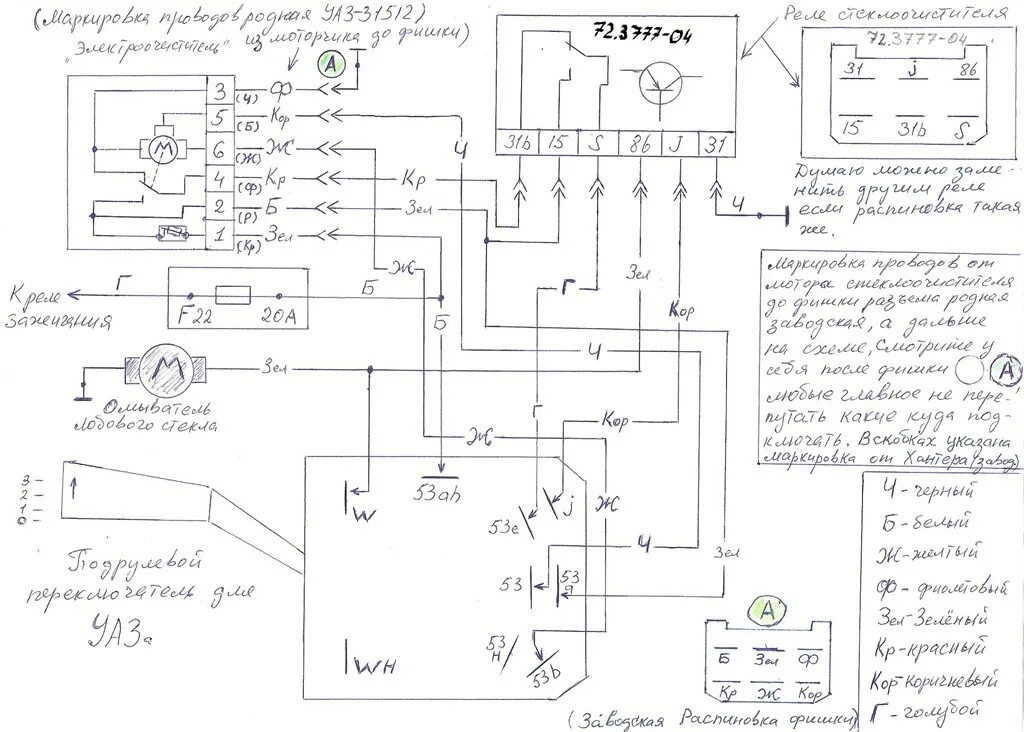 (Маркировка проводов родная УАЗ-31512)
из моторчика до фишки)
"Электроочиститель"
А
3 (Ч) Ф
5 (Б) Кор
6 (Ж) Ж
4 (Ф) Кр
2 (Р) Б
1 (Кр) Зел
М
Ч
Кр
Зел
Ж
72.3777-04
31b 15 S 86 J 31
Ч
Реле стеклоочистителя
72.3777-04
31 j 86
15 31b S
Думаю можно заме-
нить другим реле
если распиновка такая
же.
К реле
зажигания
Г
F22 20А
Б
Б
Г
Зел
Кор
М
Зел
Омыватель
лобового стекла
Ч
Г
Кор
Ж
Маркировка проводов от
мотора стеклоочистителя
до фишки разъема родная
заводская, а дальше
на схеме, Смотрите у
себя после фишки А
любые главное не пере-
путать какие куда под-
ключать. В скобках указана
маркировка от Хантера (завод)
3
2
1
0
Подрулевой
переключатель для
УАЗа
W
53ah
53e
j
Ж
53
53a
Ч
Зел
53H
53b
WH
А
Б Зел Ф
Кр Ж Кор
(Заводская Распиновка фишки)
Ч-чёрный
Б-белый
Ж-желтый
Ф-фиолтовый
Зел-Зелёный
Кр-красный
Кор-Коричневый
Г-голубой